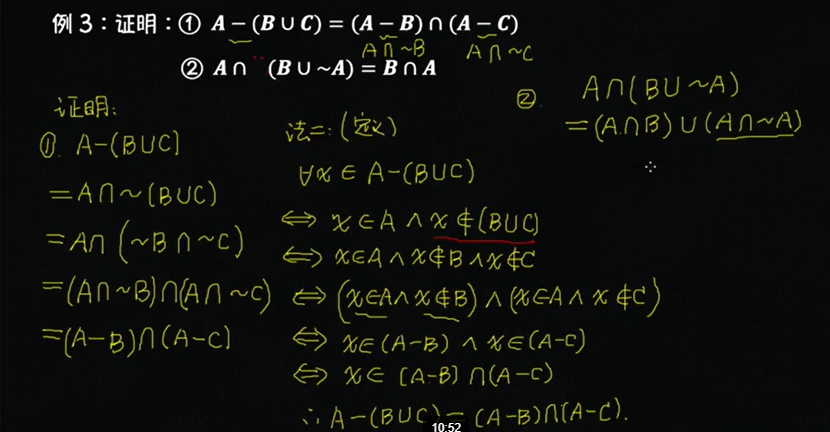 例3：证明：① A－(B∪C)=(A－B)∩(A－C)
A∩~B A∩~C
② A∩ (B∪~A)=B∩A
证明:
①. A-(B∪C)
=A∩~(B∪C)
=A∩(~B∩~C)
=(A∩~B)∩(A∩~C)
=(A-B)∩(A-C)
法二:(定义)
∀x∈A-(B∪C)
⇔ x∈A∧x∉(B∪C)
⇔ x∈A∧x∉B∧x∉C
⇔ (x∈A∧x∉B)∧(x∈A∧x∉C)
⇔ x∈(A-B)∧x∈(A-C)
⇔ x∈(A-B)∩(A-C)
∴A-(B∪C)=(A-B)∩(A-C).
② A∩(B∪~A)
=(A∩B)∪(A∩~A)
10:52